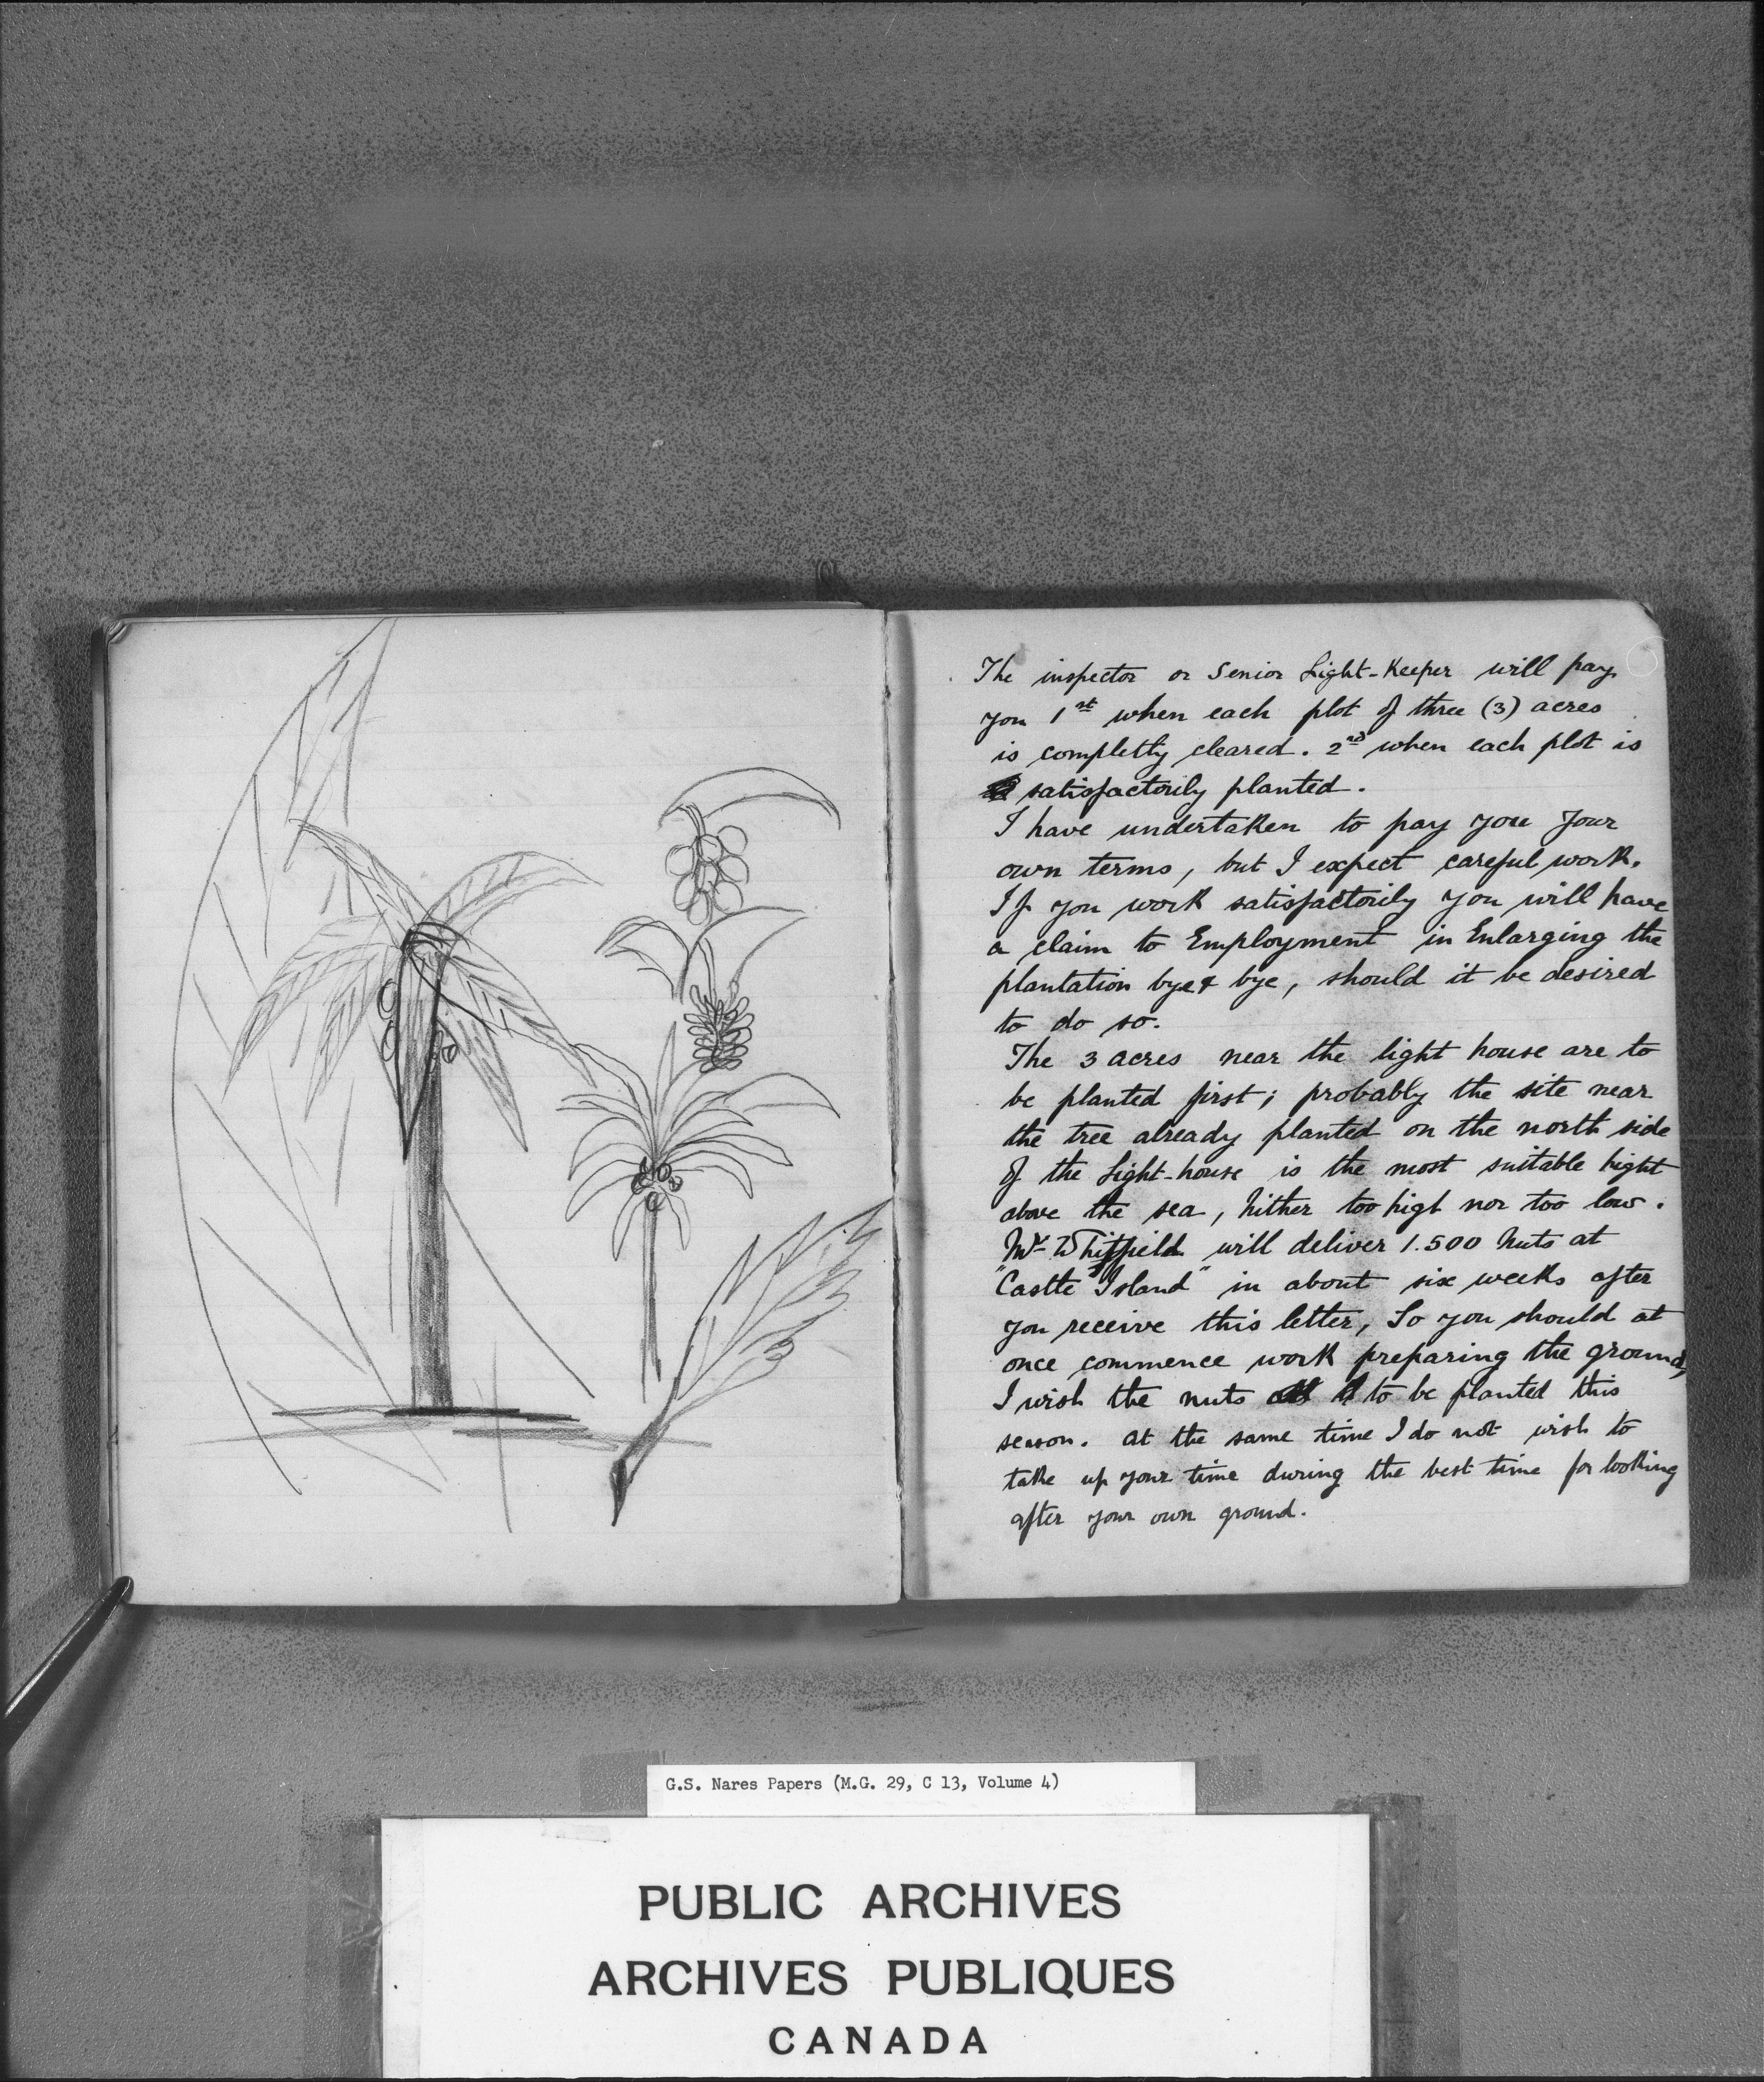 The inspector or Senior Light-Keeper will pay
you 1st when each plot of three (3) acres
is completly cleared. 2nd when each plot is
satisfactorily planted.
I have undertaken to pay you Your
own terms, but I expect careful work.
If you work satisfactorily you will have
a claim to Employment in Enlarging the
plantation bye & bye, should it be desired
to do so.
The 3 acres near the light house are to
be planted first; probably the site near
the tree already planted on the north side
of the Light-house is the most suitable hight
above the sea, nither too high nor too low.
Mr Whitfield will deliver 1.500 Nuts at
"Castle Island" in about six weeks after
you receive this letter, So you should at
once commence work preparing the ground,
I wish the nuts to be planted this
season. at the same time I do not wish to
take up your time during the best time for looking
after your own ground.
G.S. Nares Papers (M.G. 29, C 13, Volume 4)
PUBLIC ARCHIVES
ARCHIVES PUBLIQUES
CANADA